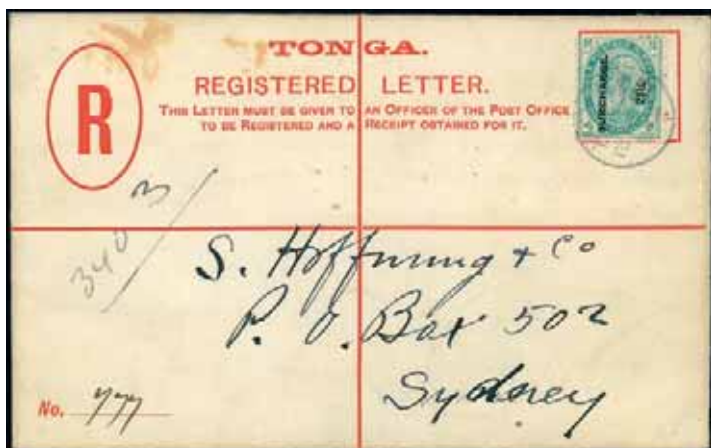 TONGA.
REGISTERED LETTER.
THIS LETTER MUST BE GIVEN TO AN OFFICER OF THE POST OFFICE
TO BE REGISTERED AND A RECEIPT OBTAINED FOR IT.
R
SURCHARGE.
340
S. Hoffnung + Co
P. O. Box 502
Sydney
No.